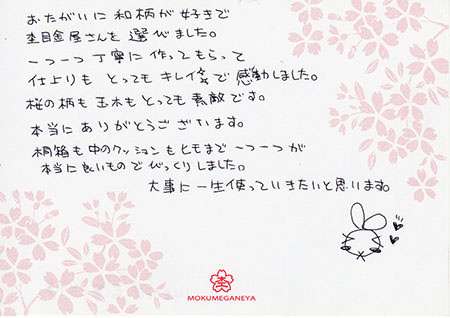 おたがいに和柄が好きで
杢目金屋さんを選びました。
一つ一つ丁寧に作ってもらって
仕上りも とってもキレイで感動しました。
桜の柄も玉木もとっても素敵です。
本当にありがとうございます。
桐箱も中のクッションもともまで一つ一つが
本当に良いものでびっくりしました。
大事に一生使っていきたいと思います。
MOKUMEGANEYA